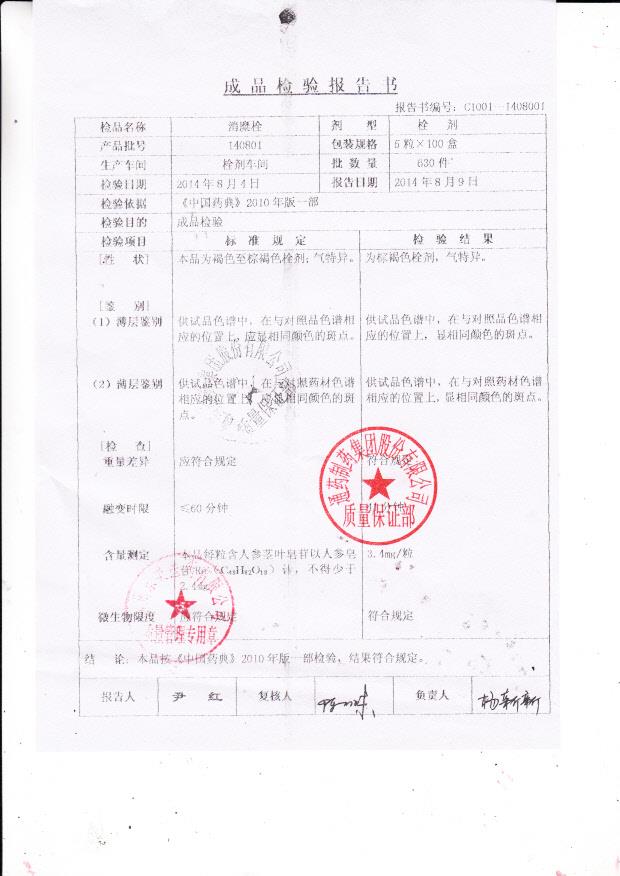 成品检验报告书
报告书编号：C1001—1408001
检品名称 消糜栓 剂 型 栓 剂
产品批号 140801 包装规格 5粒×100盒
生产车间 栓剂车间 批 数 量 630件
检验日期 2014年8月4日 报告日期 2014年8月9日
检验依据 《中国药典》2010年版一部
检验目的 成品检验
检验项目 标 准 规 定 检 验 结 果
[性 状] 本品为褐色至棕褐色栓剂；气特异。 为棕褐色栓剂，气特异。
[鉴 别]
（1）薄层鉴别 供试品色谱中，在与对照品色谱相 供试品色谱中，在与对照品色谱相
应的位置上，应显相同颜色的斑点。 应的位置上，显相同颜色的斑点。
（2）薄层鉴别 供试品色谱中，在与对照药材色谱 供试品色谱中，在与对照药材色谱
相应的位置上，应显相同颜色的斑 相应的位置上，显相同颜色的斑点。
点。
[检 查]
重量差异 应符合规定 符合规定
融变时限 ≤60分钟 分钟
含量测定 本品每粒含人参茎叶皂苷以人参皂 3.4mg/粒
苷Re（C48H82O18）计，不得少于
微生物限度 应符合规定 符合规定
通药制药集团股份有限公司
质量保证部
质量管理专用章
结 论：本品按《中国药典》2010年版一部检验，结果符合规定。
报告人 尹 红 复核人 负责人 杨新新